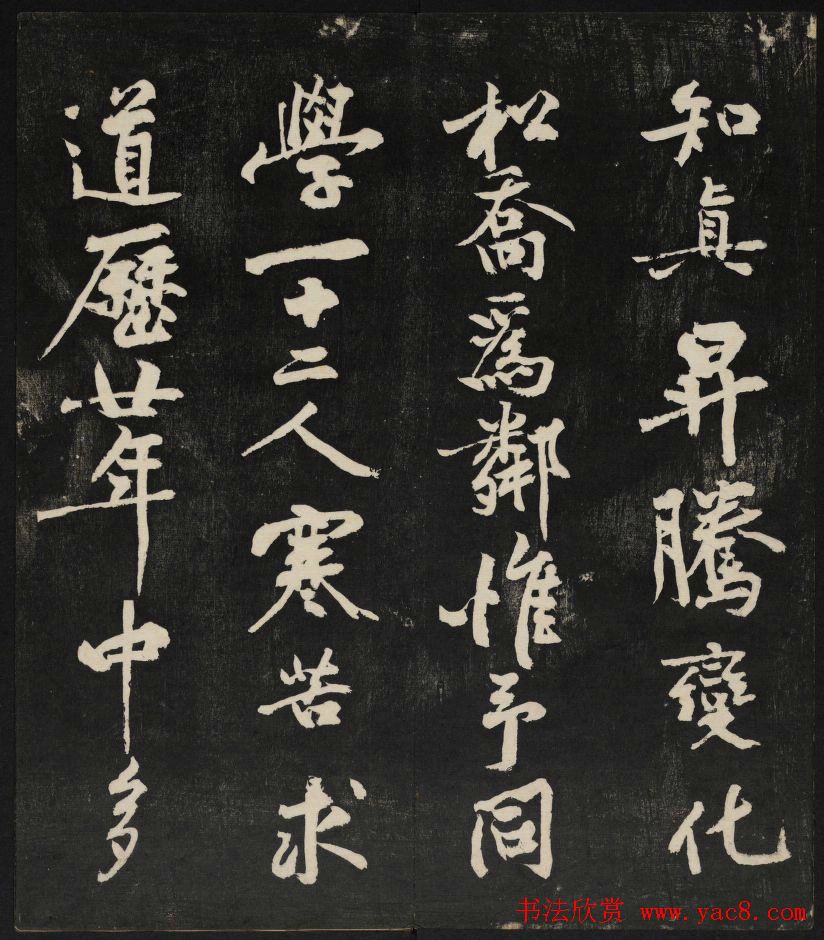 知真昇騰變化
松喬爲鄰惟予同
學一十二人寒苦求
道歷廿年中多
书法欣赏 www.yac8.com